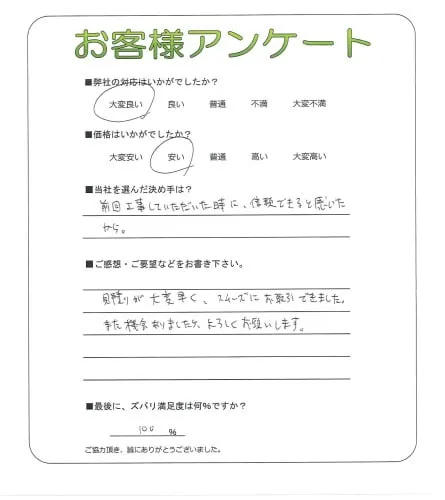 お客様アンケート
■弊社の対応はいかがでしたか？
大変良い 良い 普通 不満 大変不満
■価格はいかがでしたか？
大変安い 安い 普通 高い 大変高い
■当社を選んだ決め手は？
前回工事していただいた時に、信頼できると感じた
から。
■ご感想・ご要望などをお書き下さい。
見積りが大変早く、スムーズにお取引できました。
また機会ありましたら、よろしくお願いします。
■最後に、ズバリ満足度は何%ですか？
100 %
ご協力頂き、誠にありがとうございました。